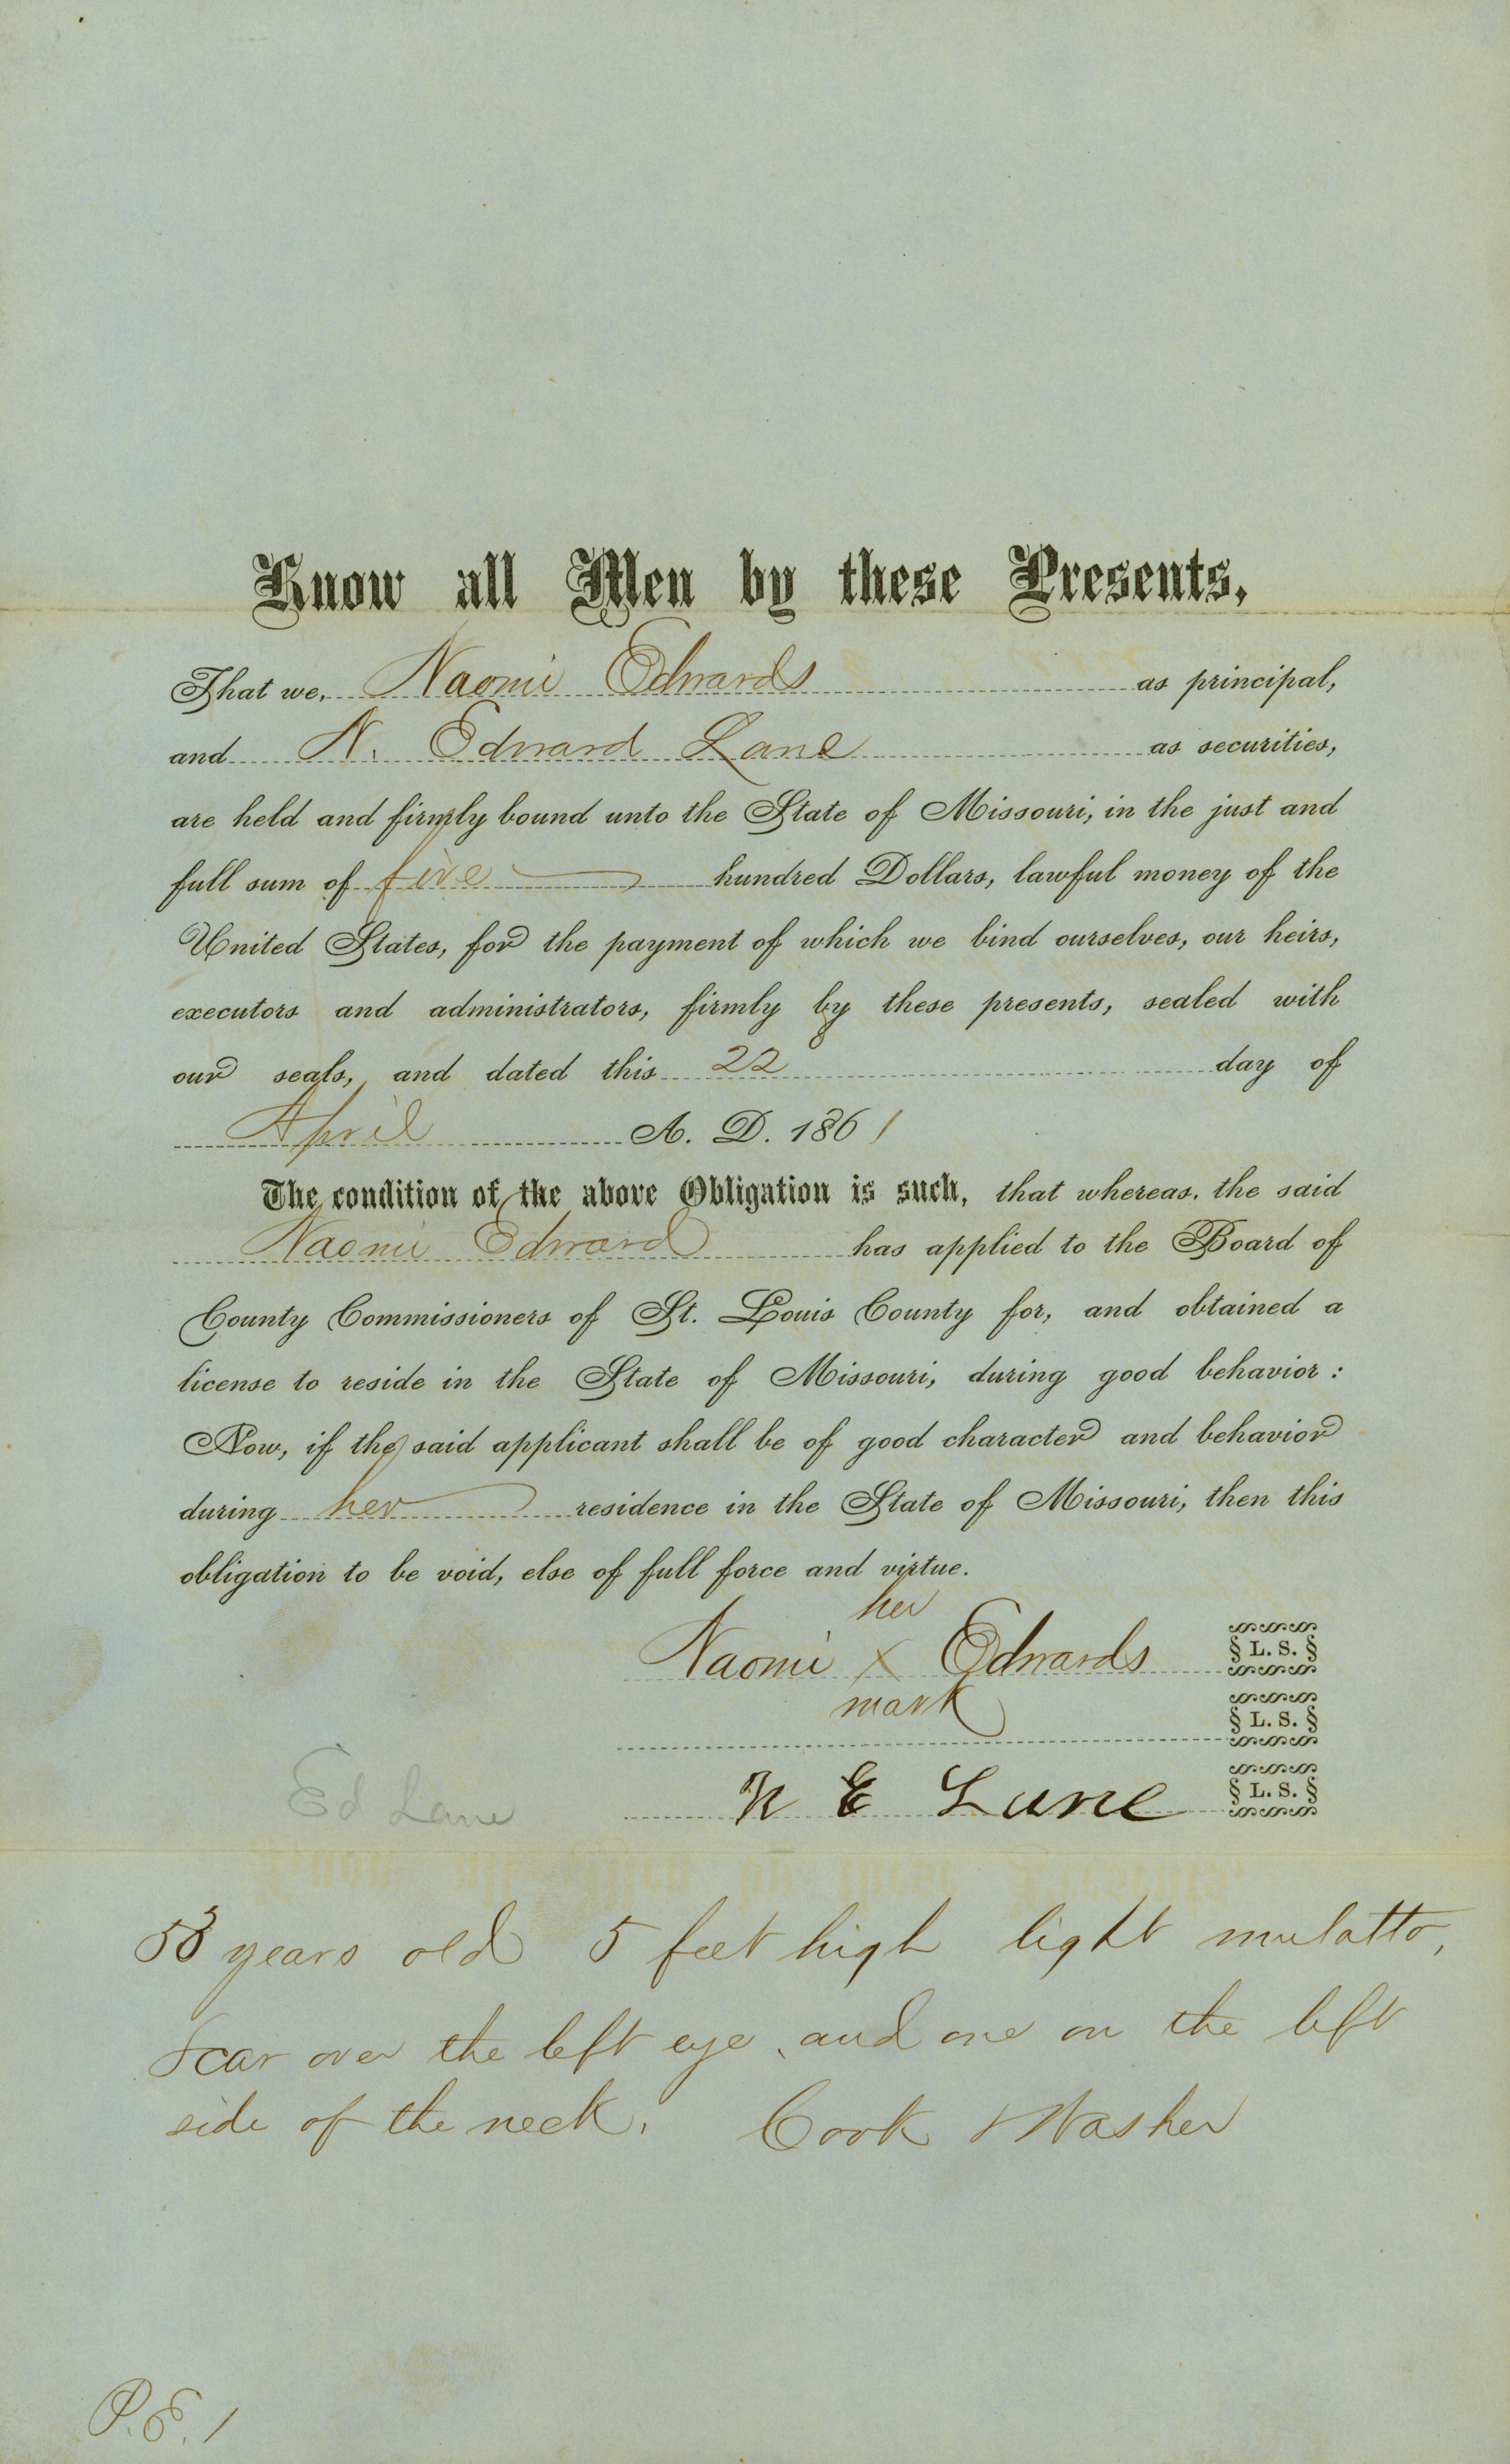 Know all Men by these Presents,
That we, Naomi Edwards as principal,
and N. Edward Lane as securities,
are held and firmly bound unto the State of Missouri, in the just and
full sum of five hundred Dollars, lawful money of the
United States, for the payment of which we bind ourselves, our heirs,
executors and administrators, firmly by these presents, sealed with
our seals, and dated this 22 day of
April A. D. 1861
The condition of the above Obligation is such, that whereas, the said
Naomi Edward has applied to the Board of
County Commissioners of St. Louis County for, and obtained a
license to reside in the State of Missouri, during good behavior :
Now, if the said applicant shall be of good character and behavior
during her residence in the State of Missouri, then this
obligation to be void, else of full force and virtue.
her
Naomi X Edwards § L. S. §
mark
§ L. S. §
Ed Lane N E Lane § L. S. §
years old 5 feet high light mulatto,
Scar over the left eye, and one on the left
side of the neck. Cook & Washer
P.E. 1